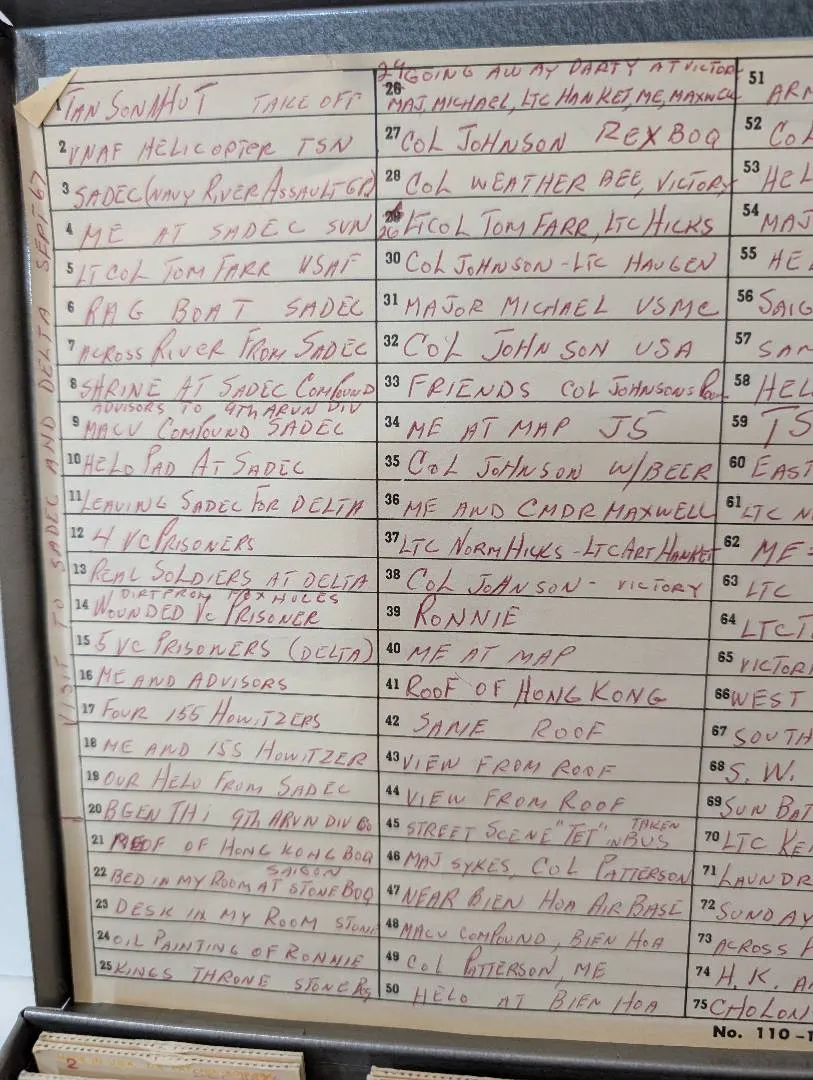 VISIT TO SADEC AND DELTA SEPT. 67
1 TAN SON NHUT TAKE OFF
2 VNAF HELICOPTER TSN
3 SADEC (NAVY RIVER ASSAULT GP)
4 ME AT SADEC SUN
5 LT COL TOM FARR USAF
6 RAG BOAT SADEC
7 ACROSS RIVER FROM SADEC
8 SHRINE AT SADEC COMPOUND
ADVISORS TO 9TH ARVN DIV
9 MACV COMPOUND SADEC
10 HELO PAD AT SADEC
11 LEAVING SADEC FOR DELTA
12 4 VC PRISONERS
13 REAL SOLDIERS AT DELTA
DIRT FROM FOXHOLES
14 WOUNDED VC PRISONER
15 5 VC PRISONERS (DELTA)
16 ME AND ADVISORS
17 FOUR 155 HOWITZERS
18 ME AND 155 HOWITZER
19 OUR HELO FROM SADEC
20 BGEN THI 9TH ARVN DIV CO
21 ROOF OF HONG KONG BOQ
SAIGON
22 BED IN MY ROOM AT STONE BOQ
23 DESK IN MY ROOM STONE
24 OIL PAINTING OF RONNIE
25 KINGS THRONE STONE
24 GOING AWAY PARTY AT VICTOR
26 MAJ. MICHAEL, LTC HANKET, ME, MAXWELL
27 COL JOHNSON REX BOQ
28 COL WEATHER BEE, VICTORY
26 LTCOL TOM FARR, LTC HICKS
30 COL JOHNSON - LTC HAUGEN
31 MAJOR MICHAEL USMC
32 COL JOHNSON USA
33 FRIENDS COL JOHNSONS
34 ME AT MAP J5
35 COL JOHNSON W/BEER
36 ME AND CMDR MAXWELL
37 LTC NORM HICKS - LTC ART HANKET
38 COL JOHNSON - VICTORY
39 RONNIE
40 ME AT MAP
41 ROOF OF HONG KONG
42 SAME ROOF
43 VIEW FROM ROOF
44 VIEW FROM ROOF
45 STREET SCENE "TET" TAKEN IN BUS
46 MAJ SYKES, COL PATTERSON
47 NEAR BIEN HOA AIR BASE
48 MACV COMPOUND, BIEN HOA
49 COL PATTERSON, ME
50 HELO AT BIEN HOA
51 ARM
52 COL
53 HEL
54 MAJ
55 HE
56 SAIG
57 SAM
58 HEL
59 TS
60 EAST
61 LTC N
62 ME
63 LTC
64 LTC T
65 VICTORI
66 WEST
67 SOUTH
68 S. W.
69 SUN BAT
70 LTC KE
71 LAUNDR
72 SUNDAY
73 ACROSS
74 H. K. A
75 CHOLON
No. 110-1
2